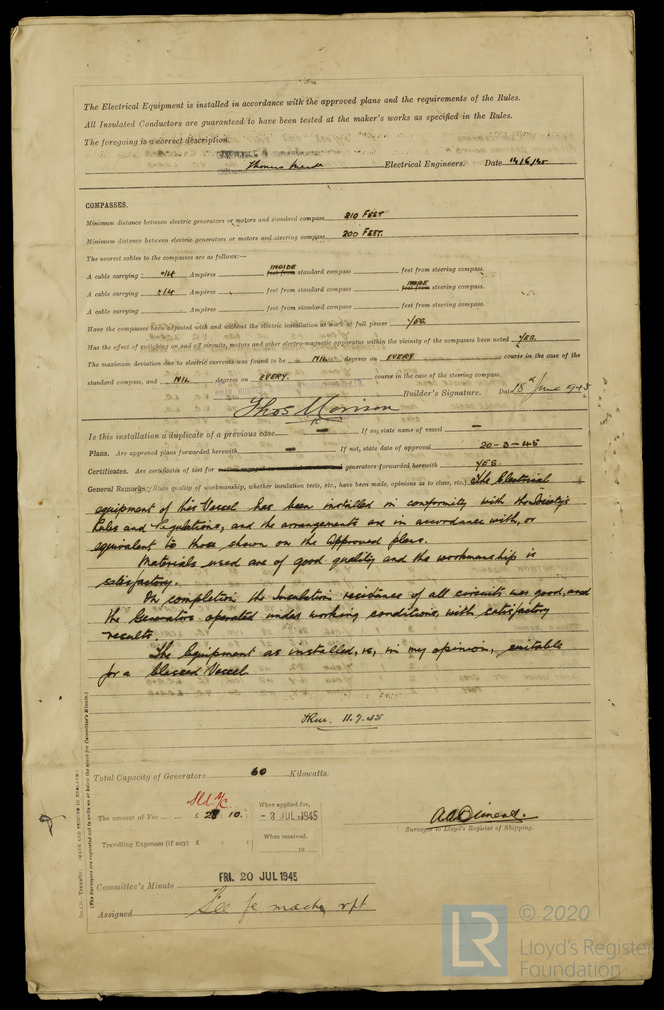 The Electrical Equipment is installed in accordance with the approved plans and the requirements of the Rules.
All Insulated Conductors are guaranteed to have been tested at the maker's works as specified in the Rules.
The foregoing is a correct description.
Electrical Engineers. Date 14/6/45
COMPASSES.
Minimum distance between electric generators or motors and standard compass 210 FEET
Minimum distance between electric generators or motors and steering compass 200 FEET.
The nearest cables to the compasses are as follows:—
A cable carrying ·14 Ampères INSIDE feet from standard compass feet from steering compass.
A cable carrying ·14 Ampères feet from standard compass INSIDE feet from steering compass.
A cable carrying Ampères feet from standard compass feet from steering compass.
Have the compasses been adjusted with and without the electric installation at work at full power YES.
Has the effect of switching on and off circuits, motors and other electro-magnetic apparatus within the vicinity of the compasses been noted YES.
The maximum deviation due to electric currents was found to be NIL degrees on EVERY course in the case of the
standard compass, and NIL degrees on EVERY. course in the case of the steering compass.
Thos Morison Builder's Signature. Date 18th June 1945
Is this installation a duplicate of a previous case — If so, state name of vessel —
Plans. Are approved plans forwarded herewith — If not, state date of approval 20-3-45
Certificates. Are certificates of test for generators forwarded herewith YES.
General Remarks. (State quality of workmanship, whether insulation tests, etc., have been made, opinions as to class, etc.) The Electrical
equipment of this Vessel has been installed in conformity with the Society's
Rules and Regulations, and the arrangements are in accordance with, or
equivalent to those shown on the Approved plans.
Materials used are of good quality and the workmanship is
satisfactory.
On completion the Insulation resistance of all circuits was good, and
the Generators operated under working conditions, with satisfactory
results.
The Equipment as installed, is, in my opinion, suitable
for a Classed Vessel.
11.7.45
Total Capacity of Generators 60 Kilowatts.
The amount of Fee £ 10 :
When applied for,
- 3 JUL 1945
Travelling Expenses (if any) £ : :
When received,
19
Surveyor to Lloyd's Register of Shipping.
Committee's Minute FRI. 20 JUL 1945
Assigned See Je machy rpt
(The Surveyors are requested not to write on or below the space for Committee's Minute.)
LR
© 2020
Lloyd's Register
Foundation